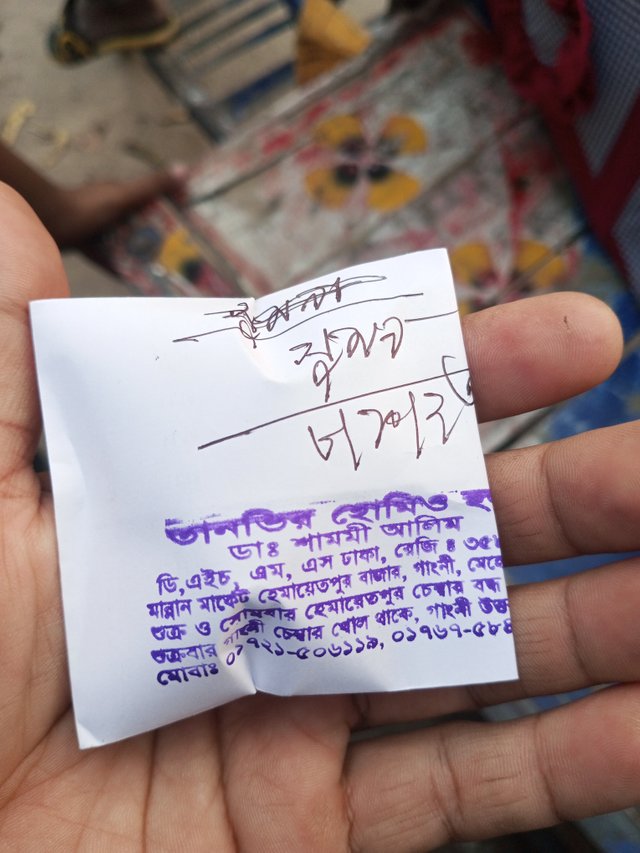 তানভির হোমিও হ
ডাঃ শামমী আলিম
ডি,এইচ, এম, এস ঢাকা, রেজি ঃ ৩৫৮
মান্নান মার্কেট হেমায়েতপুর বাজার, গাংনী, মেহে
শুক্র ও সোমবার হেমায়েতপুর চেম্বার বন্ধ
শুক্রবার গাংনী চেম্বার খোলা থাকে, গাংনী উত্ত
মোবাঃ ০১৭২১-৫০৬১১৯, ০১৭৬৭-৫৮৪